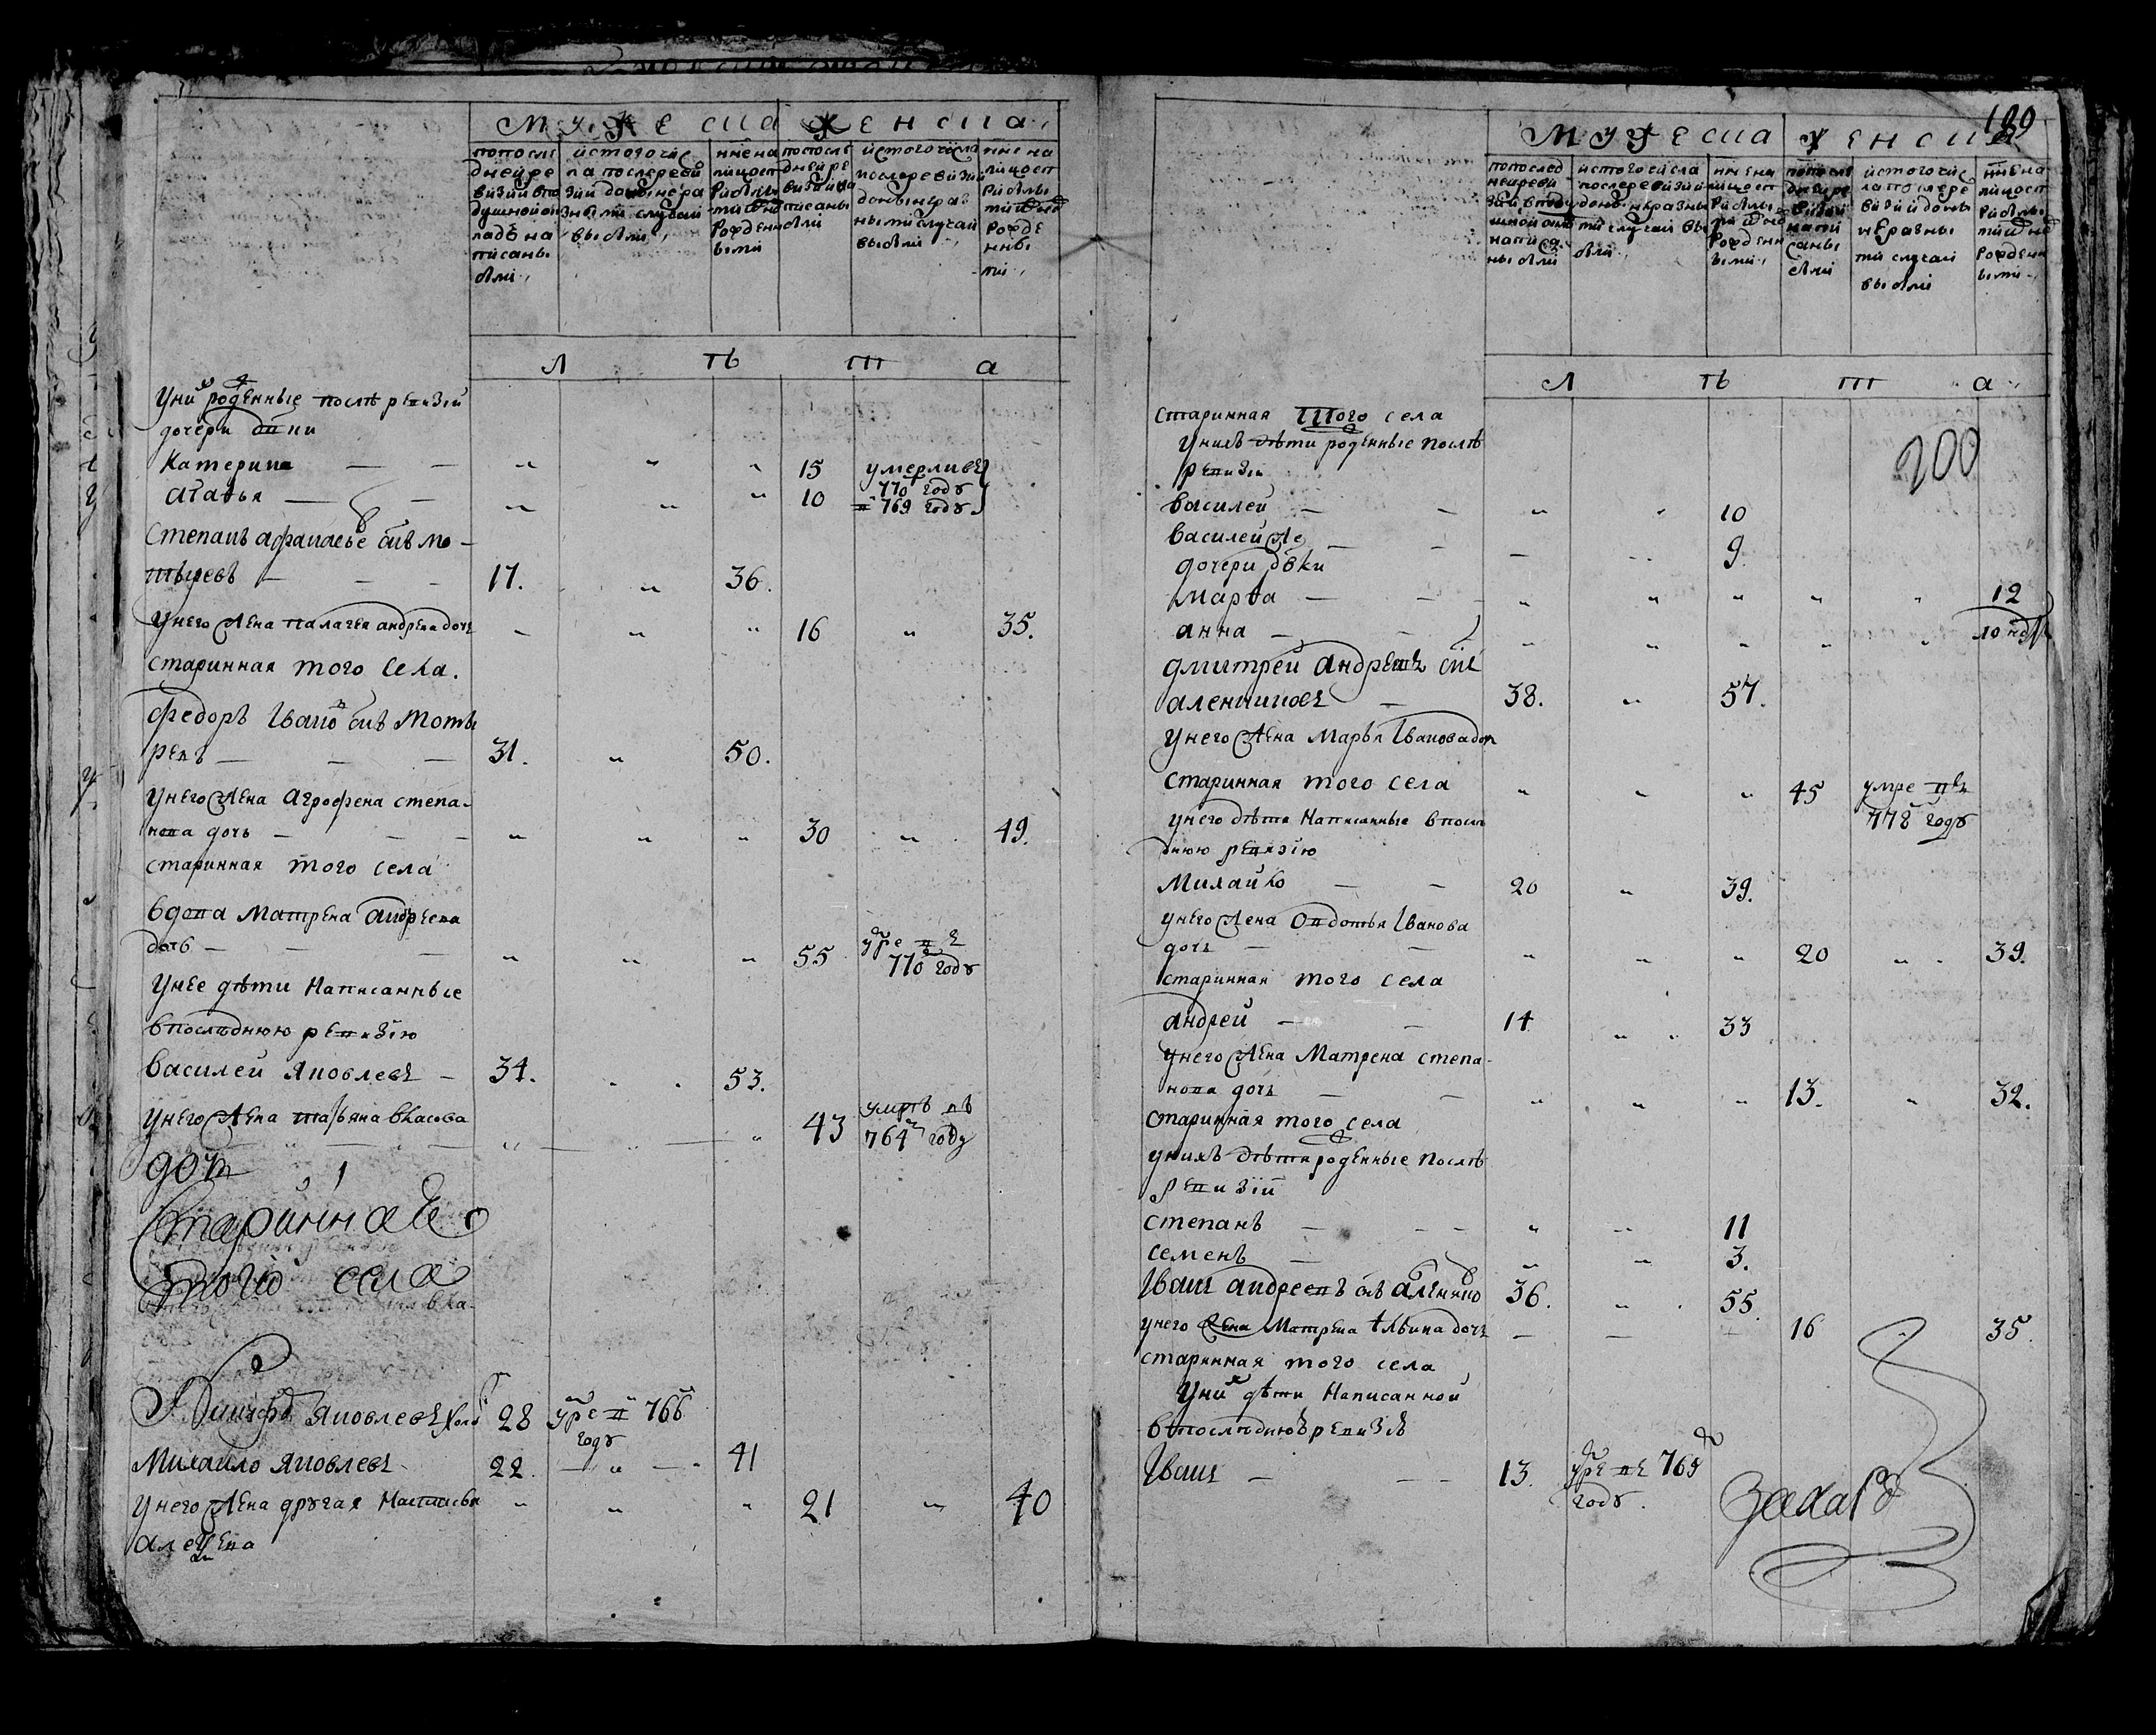 мужеска женска
попосле дней ре визии впо душной ок ладъ на писаны были
ис того чис ла после реви зии до ныне ра зными случаи выбыли
ныне на лицо с при были ми и вно рожденн ыми
попосле дней ре визии на писаны были
ис того числа после ревизии до ныне раз ными случаи выбыли
ныне на лицо с при былы ми и вно рожде нны ми
л ѣ т а
у них рожденные после ревизии
дочери дѣвки
Катерина — — „ „ „ 15 умерли въ 770 году
агафья — — „ „ „ 10 в 769 году
степанъ афанасьевъ сынъ мо-
тыревъ — — 17. „ 36.
у него жена палагея андреева дочь — „ „ 16 „ 35.
старинная того села.
федоръ Ивановъ сынъ Моты
ревъ — — 31. „ 50.
у него жена агрофена степа-
нова дочь — — „ „ „ 30 „ 49.
старинная того села
вдова Матрена андреева
дочь — — „ „ „ 55 умре в 770 году
у нее дѣти написанные
в последнюю ревизiю
василей яковлевъ — 34. „ 53.
у него жена татьяна власова „ „ „ 43 умрѣ въ 764м году
дочь
старинная
того села
яковлевъ 28 умре в 766 году
Михаило яковлевъ 22. — „ — 41
у него жена другая Настасья „ „ „ 21 „ 40
алексеева
199
мужеска женска
попослед ней реви зии в поду шной окла написа ны были
ис того числа после ревизии до ныне разны ми случаи выбыли
ныне на лицо с при былы ми и вно рожденн ыми
попосле дней ре визии напи саны были
ис того чис ла после ре визии до ны не разны ми случаи выбыли
ныне на лицо с при былы ми и вно рожденн ыми
л ѣ т а
200
старинная того села
у нихъ дѣти рожденные после
ревизiи
василей — — „ „ 10
василей же — — — „ 9.
дочери дѣвки
марфа — — „ „ „ „ „ 12
анна — — „ „ „ „ „ 10 нед
дмитрей андреевъ сынъ
аленкиновъ — 38. „ 57.
у него жена Марья Иванова дочь
старинная того села „ „ „ 45 умре въ 778 году
у него дѣти написанные в посл
днюю ревизiю
Михайло — — 20 „ 39.
у него жена Овдотья Иванова
дочь — — „ „ „ 20 „ 39.
старинная того села
андрей — — 14 „ 33
у него жена Матрена степа-
нова дочь — — „ „ „ 13. „ 32.
старинная того села
у нихъ дѣти рожденные после
ревизiи
степанъ — — — „ — 11
семенъ — „ „ 3.
Иванъ андреевъ сынъ аленкино 36. „ 55.
у него жена Матрена дочь — — — 16 35.
старинная того села
у них дѣти написанной
в последнюю ревизiю
Иванъ — — 13. умре въ 765 году.
захаръ